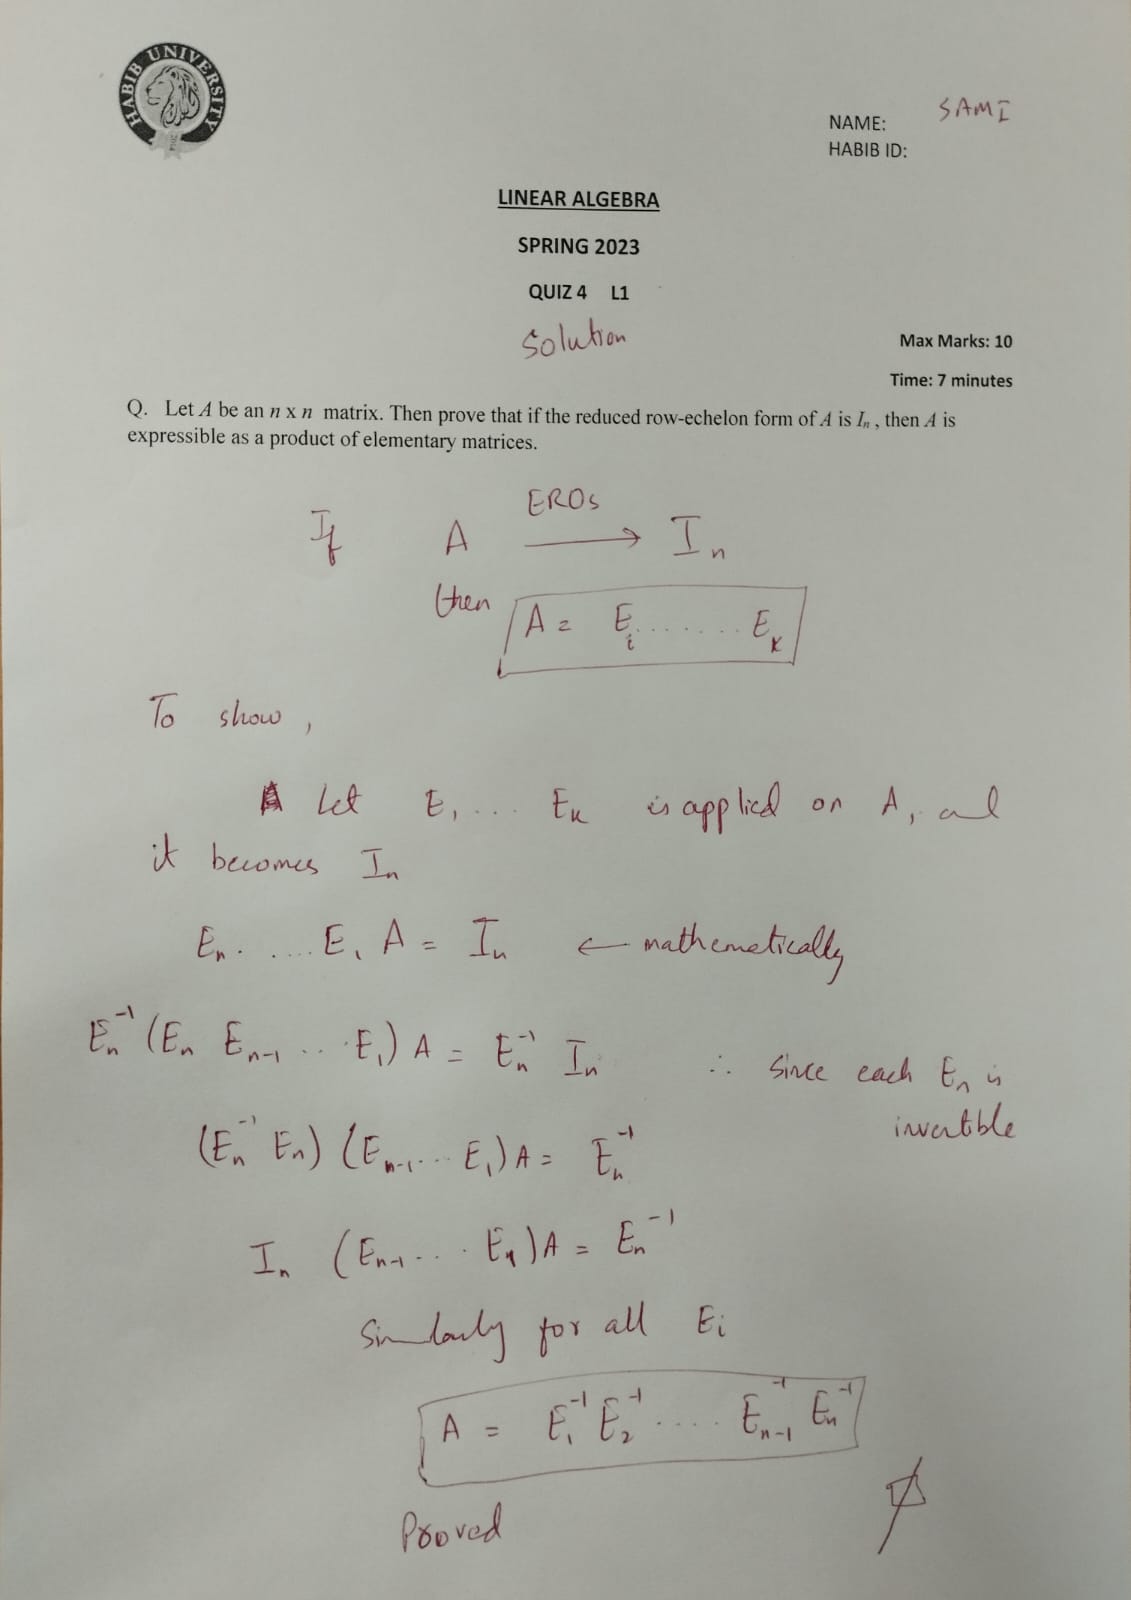 HABIB UNIVERSITY
SAMI
NAME:
HABIB ID:
LINEAR ALGEBRA
SPRING 2023
QUIZ 4 L1
Solution
Max Marks: 10
Time: 7 minutes
Q. Let A be an n x n matrix. Then prove that if the reduced row-echelon form of A is Iₙ, then A is
expressible as a product of elementary matrices.
EROs
If A → Iₙ
then A = Eᵢ ....... Eₖ
To show,
Let E₁ ... Eₖ is applied on A, and
it becomes Iₙ
Eₙ ..... E₁ A = Iₙ ← mathematically
Eₙ⁻¹ (Eₙ Eₙ₋₁ ... E₁) A = Eₙ⁻¹ Iₙ ∴ since each Eₙ is
invertible
(Eₙ⁻¹ Eₙ) (Eₙ₋₁ ... E₁) A = Eₙ⁻¹
Iₙ (Eₙ₋₁ ... E₁) A = Eₙ⁻¹
Similarly for all Eᵢ
A = E₁⁻¹ E₂⁻¹ .... Eₙ₋₁⁻¹ Eₙ⁻¹
Proved